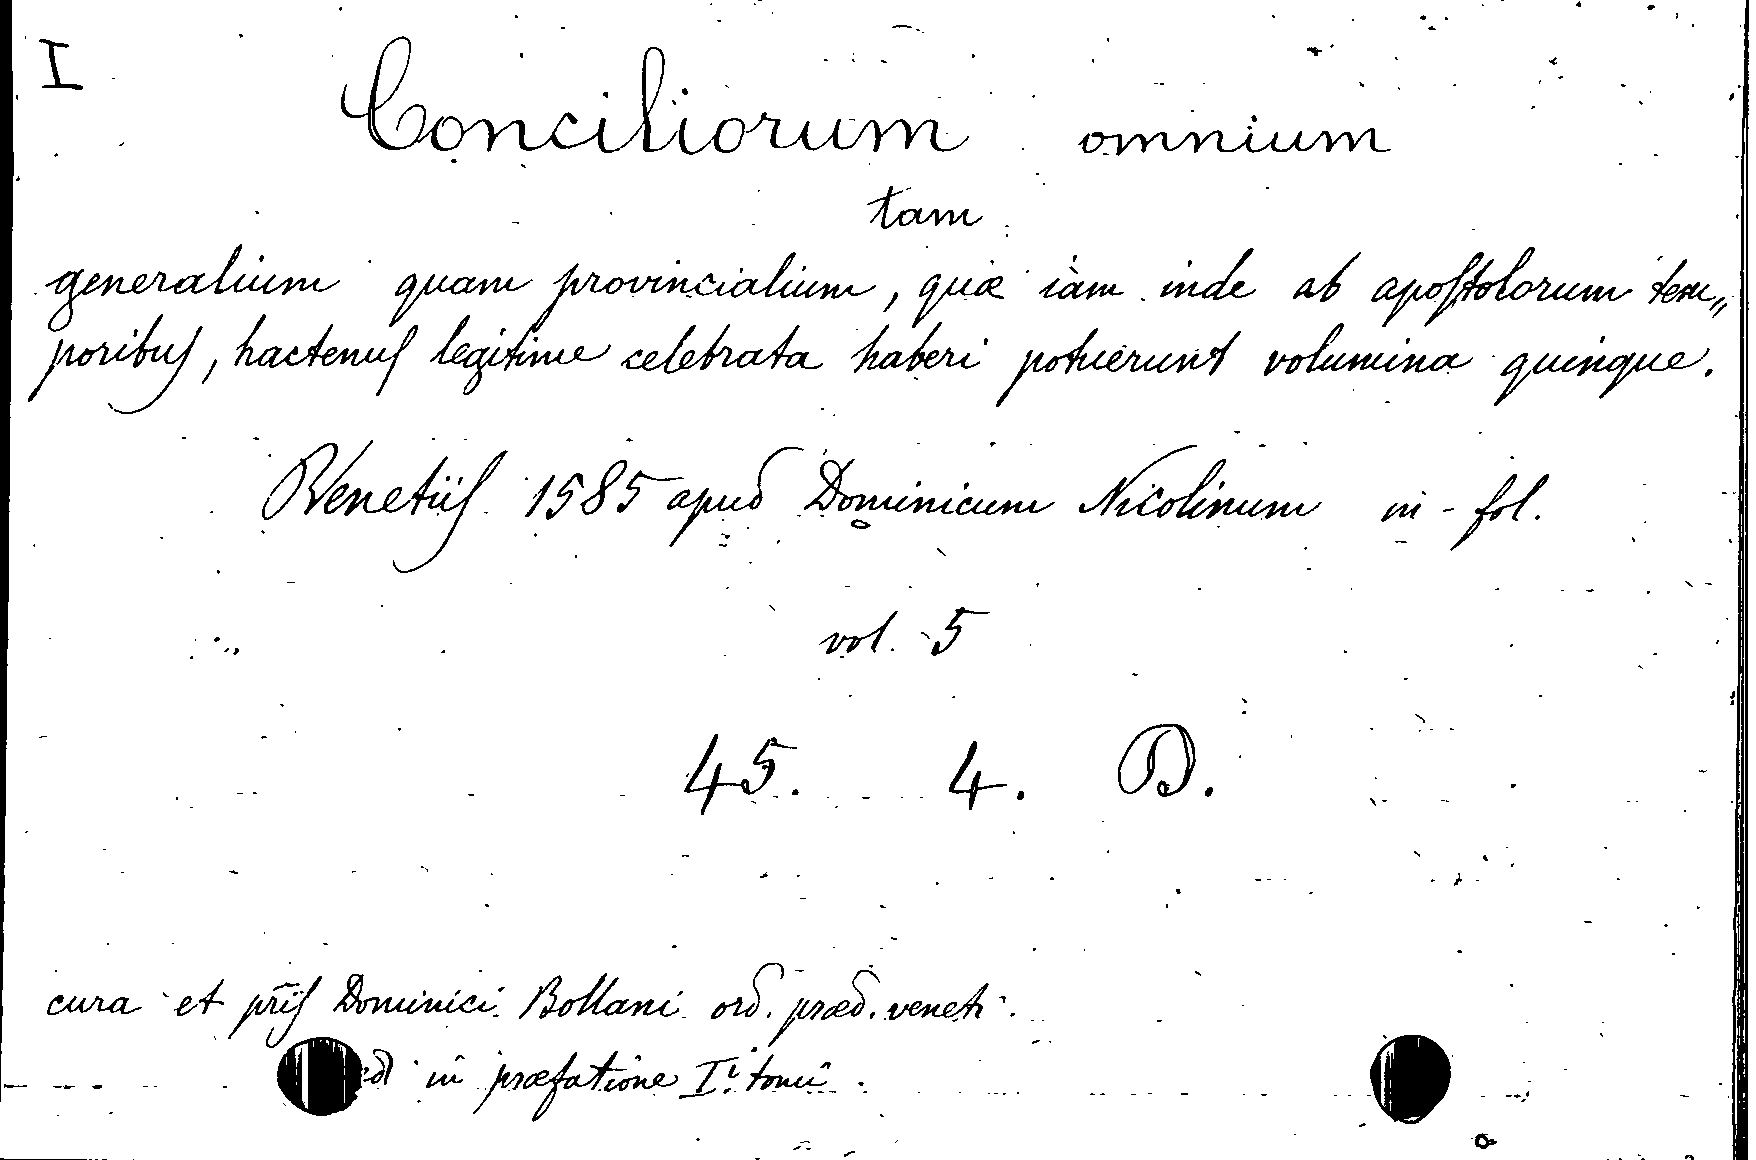 I
Conciliorum omnium
tam
generalium quam provincialium, quæ iàm inde ab apoſtolorum tem„
poribuſ, hactenuſ legitime celebrata haberi potuerunt volumina quinque.
Venetiiſ 1585 apud Dominicum Nicolinum in - fol.
vol. 5
45. 4. D.
cura et Dominici Bollani ord. præd. veneti.
in præfatione Iⁱ tomi.